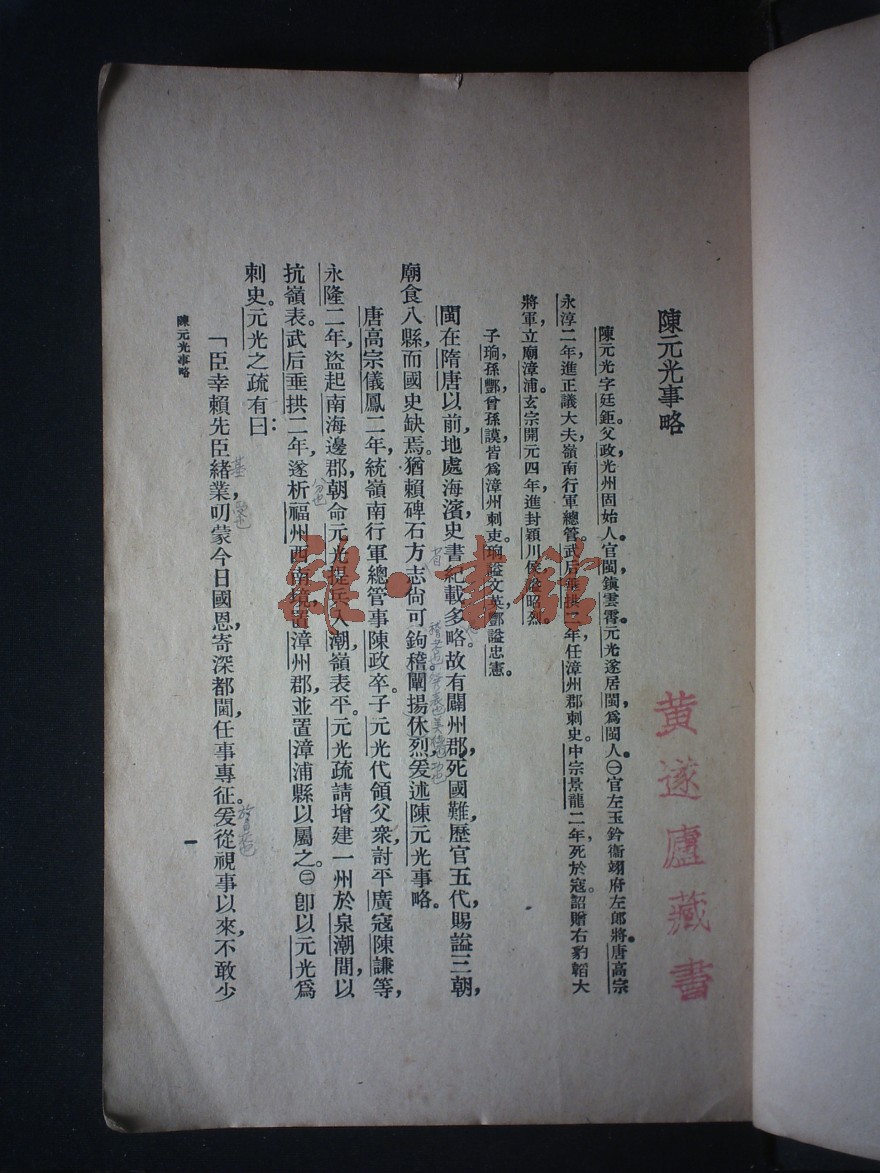 陳元光事略
陳元光字廷鉅父政光州固始人官閩鎮雲霄元光遂居閩為閩人。㊀官左玉鈐衞翊府左郎將。唐高宗
永淳二年進正議大夫嶺南行軍總管。武后垂拱二年任漳州郡刺史。中宗景龍二年，死於寇。詔贈右豹韜大
將軍，立廟漳浦。玄宗開元四年進封潁川侯諡昭烈
子珦，孫酆，曾孫謨皆為漳州刺史。珦諡文英，酆諡忠憲。
閩在隋唐以前，地處海濱，史書紀載多略。故有闢州郡，死國難，歷官五代，賜諡三朝，
廟食八縣，而國史缺焉。猶賴碑石方志，尙可鉤稽。闡揚休烈，爰述陳元光事略。
唐高宗儀鳳二年，統嶺南行軍總管事陳政卒。子元光代領父衆，討平廣寇陳謙等，
永隆二年，盜起南海邊郡，朝命元光提兵入潮，嶺表平。元光疏請增建一州於泉潮間，以
抗嶺表。武后垂拱二年，遂析福州西南境，置漳州郡，並置漳浦縣以屬之。㊁卽以元光為
刺史。元光之疏有曰：
「臣幸賴先臣緒業，叨蒙今日國恩，寄深都閫，任事專征。爰從視事以來，不敢少
陳元光事略
一
黃遂廬藏書
雜·書館
基
分也